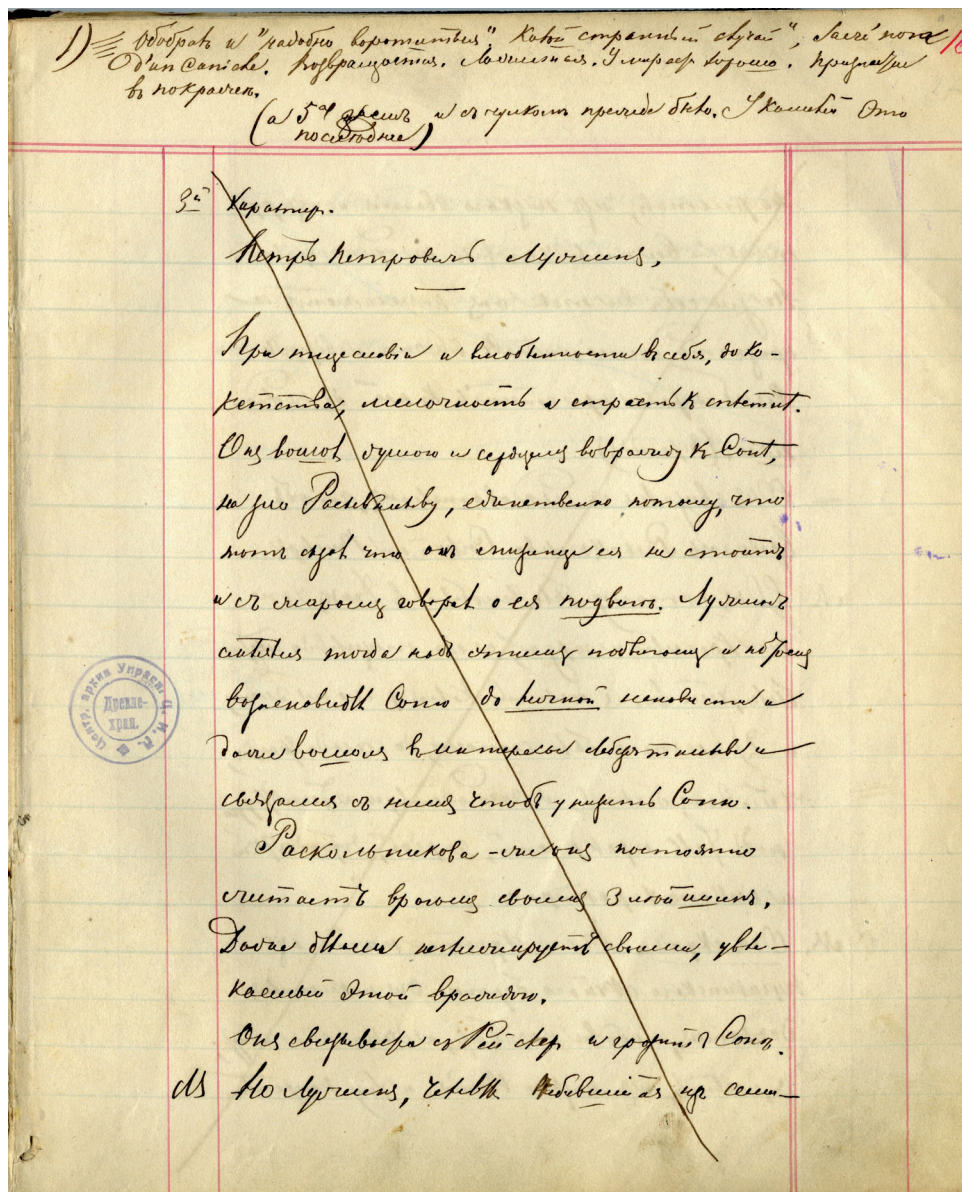 1) Ободрать и "надобно воротиться". Какой странный случай",
Возвращается. хорошо.
въ
(а 5й и съ прежде было. Это
последнее)
3й Характер.
Петръ Петровичъ Лужинъ.
При тщеславіи и влюбленности въ себя, до ко-
кетства, мелочность и страсть къ сплетнѣ.
Онъ вошолъ душою и сердцемъ во вражду къ Сонѣ,
на зло Раскольникову, единственно потому, что
тотъ сказалъ что онъ мизинца ея не стоитъ
и съ жаромъ говорилъ о ея подвигѣ. Лужинъ
смѣялся тогда надъ этимъ подвигомъ и потомъ
возненавидѣлъ Соню до личной ненависти и
даже вошолъ въ интересы Лебезятникова и
связался съ нимъ чтобъ унизить Соню.
Раскольникова-же онъ постоянно
считаетъ врагомъ своимъ Злѣйшимъ.
Даже дѣлами своими, увле-
каемый этой враждою.
Онъ съ Рейслер и Соню.
NB Но Лужинъ, человѣкъ пробившійся изъ семи-
Центр. архив Управл. Ц. И. К.
Древле-
хран.